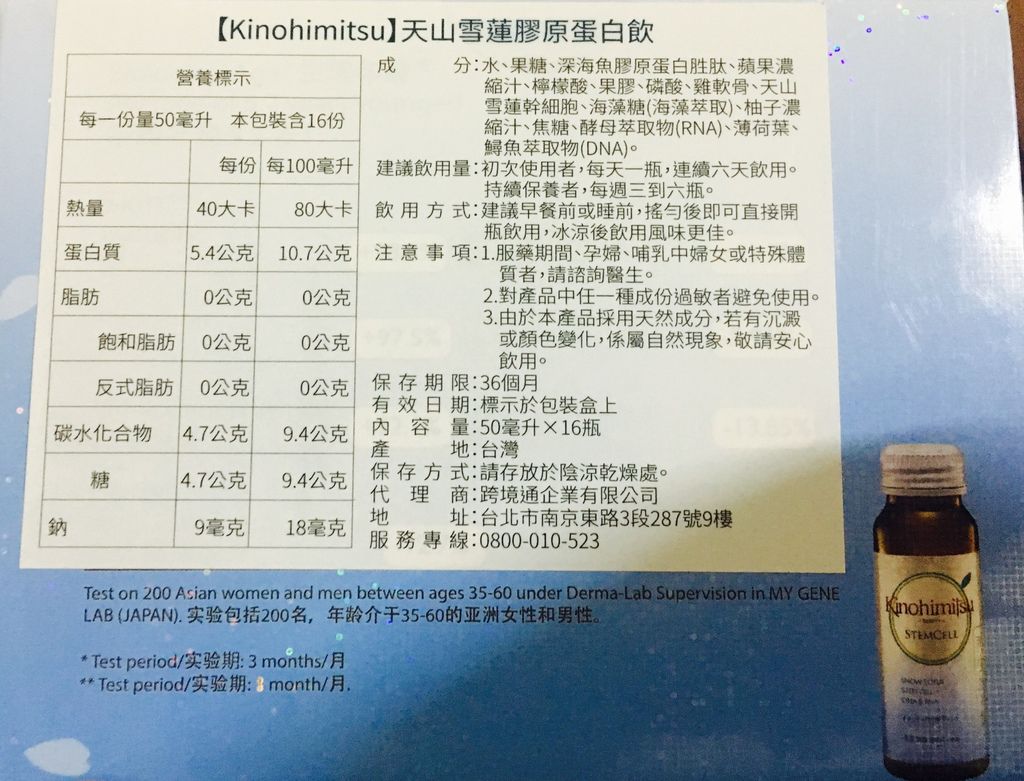 【Kinohimitsu】天山雪蓮膠原蛋白飲
營養標示
每一份量50毫升 本包裝含16份
每份 每100毫升
熱量 40大卡 80大卡
蛋白質 5.4公克 10.7公克
脂肪 0公克 0公克
飽和脂肪 0公克 0公克
反式脂肪 0公克 0公克
碳水化合物 4.7公克 9.4公克
糖 4.7公克 9.4公克
鈉 9毫克 18毫克
成分:水、果糖、深海魚膠原蛋白胜肽、蘋果濃
縮汁、檸檬酸、果膠、磷酸、雞軟骨、天山
雪蓮幹細胞、海藻糖(海藻萃取)、柚子濃
縮汁、焦糖、酵母萃取物(RNA)、薄荷葉、
鱘魚萃取物(DNA)。
建議飲用量:初次使用者,每天一瓶,連續六天飲用。
持續保養者,每週三到六瓶。
飲用方式:建議早餐前或睡前,搖勻後即可直接開
瓶飲用,冰涼後飲用風味更佳。
注意事項:1.服藥期間、孕婦、哺乳中婦女或特殊體
質者,請諮詢醫生。
2.對產品中任一種成份過敏者避免使用。
3.由於本產品採用天然成分,若有沉澱
或顏色變化,係屬自然現象,敬請安心
飲用。
保存期限:36個月
有效日期:標示於包裝盒上
內容量:50毫升×16瓶
產地:台灣
保存方式:請存放於陰涼乾燥處。
代理商:跨境通企業有限公司
地址:台北市南京東路3段287號9樓
服務專線:0800-010-523
Test on 200 Asian women and men between ages 35-60 under Derma-Lab Supervision in MY GENE
LAB (JAPAN). 实验包括200名，年龄介于35-60的亚洲女性和男性。
* Test period/实验期: 3 months/月
** Test period/实验期: month/月.
Kinohimitsu
STEMCELL